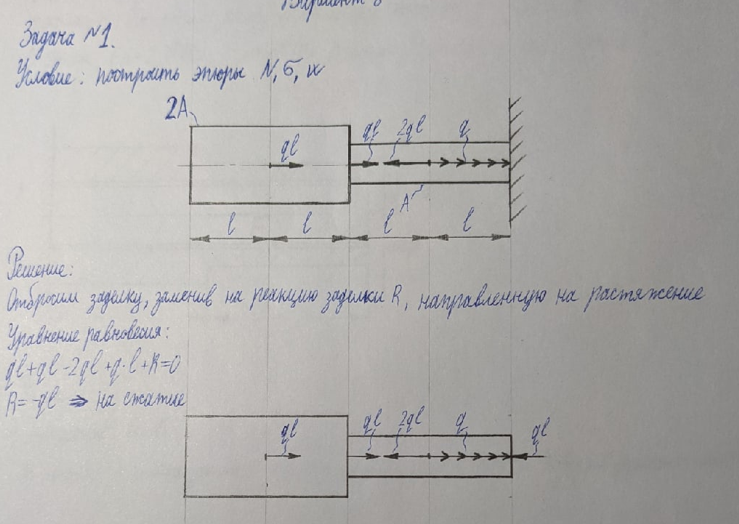 Вариант 8
Задача №1.
Условие: построить эпюры N, б, u
2A
ql
ql
2ql
q
A
l
l
l
l
Решение:
Отбросим заделку, заменив на реакцию заделки R, направленную на растяжение
Уравнение равновесия:
ql+ql-2ql+q·l+R=0
R=-ql ⇒ на сжатие
ql
ql
2ql
q
ql